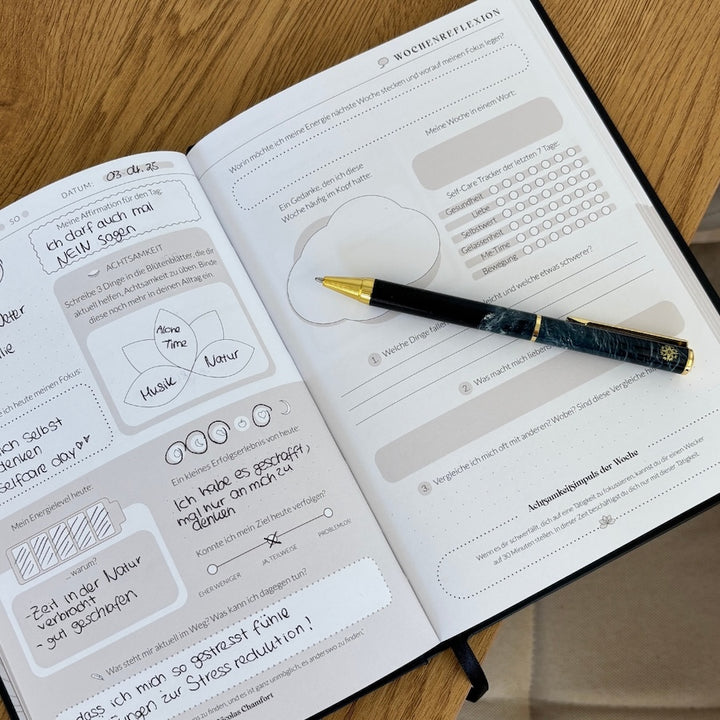 SO
DATUM: 03.04.25
Meine Affirmation für den Tag
Ich darf auch mal
NEIN sagen
ACHTSAMKEIT
Schreibe 3 Dinge in die Blütenblätter, die dir
aktuell helfen, Achtsamkeit zu üben. Binde
diese noch mehr in deinen Alltag ein.
Alone
Time
Musik
Natur
ich heute meinen Fokus:
ich selbst
denken
selfcare day
Mein Energielevel heute:
... warum?
- Zeit in der Natur
verbracht
- gut geschlafen
Ein kleines Erfolgserlebnis von heute:
Ich habe es geschafft,
mal nur an mich zu
denken
Konnte ich mein Ziel heute verfolgen?
EHER WENIGER
JA, TEILWEISE
PROBLEMLOS
Was steht mir aktuell im Weg? Was kann ich dagegen tun?
dass ich mich so gestresst fühle
zur Stressreduktion!
zu finden, und es ist ganz unmöglich, es anderswo zu finden.
Nicolas Chamfort
WOCHENREFLEXION
Worin möchte ich meine Energie nächste Woche stecken und worauf meinen Fokus legen?
Ein Gedanke, den ich diese
Woche häufig im Kopf hatte:
Meine Woche in einem Wort:
Self-Care Tracker der letzten 7 Tage:
Gesundheit
Liebe
Selbstwert
Gelassenheit
Me-Time
Bewegung
1 Welche Dinge fallen leicht und welche etwas schwerer?
2 Was macht mein lieben
3 Vergleiche ich mich oft mit anderen? Wobei? Sind diese Vergleiche
Achtsamkeitsimpuls der Woche
Wenn es dir schwerfällt, dich auf eine Tätigkeit zu fokussieren, kannst du dir einen Wecker
auf 30 Minuten stellen. In dieser Zeit beschäftigst du dich nur mit dieser Tätigkeit.